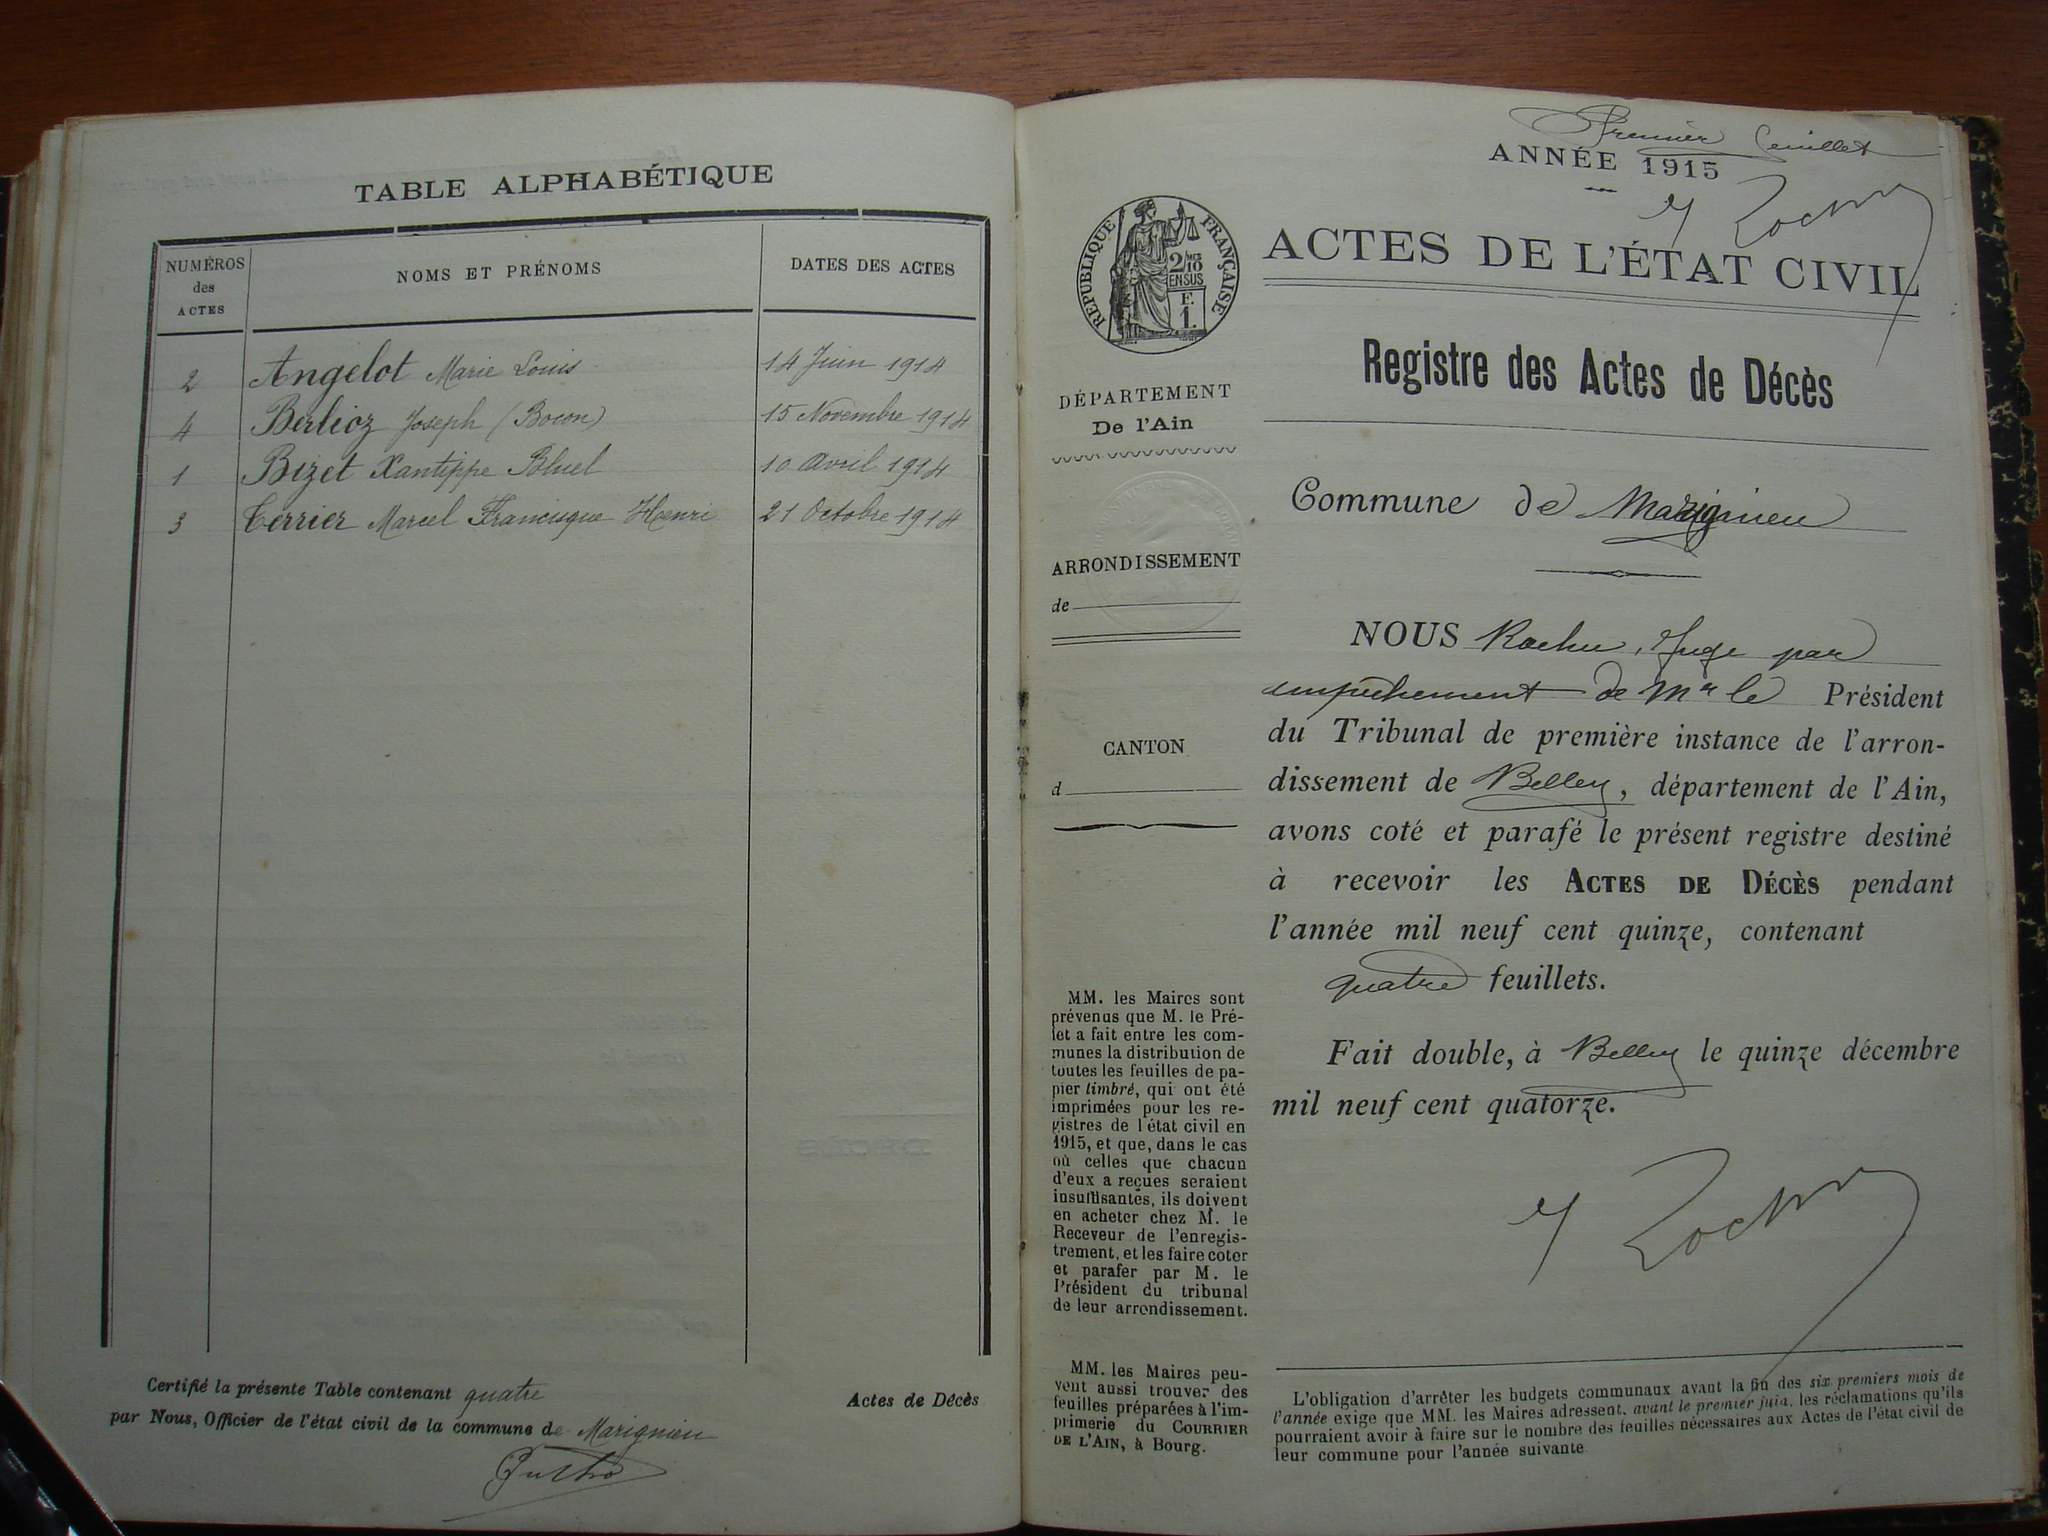 TABLE ALPHABÉTIQUE
NUMÉROS
des
ACTES
NOMS ET PRÉNOMS
DATES DES ACTES
2 Angelot Marie Louis 14 Juin 1914
4 Berlioz Joseph (Bocon) 15 Novembre 1914
1 Bizet Xantippe Bluel 10 Avril 1914
3 Terrier Marcel Francisque Henri 21 Octobre 1914
Certifié la présente Table contenant quatre
Actes de Décès
par Nous, Officier de l'état civil de la commune de Marignieu
Premier feuillet
ANNÉE 1915
RÉPUBLIQUE FRANÇAISE
2/10
EN SUS
F.
1.
ACTES DE L'ÉTAT CIVIL
Registre des Actes de Décès
DÉPARTEMENT
De l'Ain
Commune de Marignieu
ARRONDISSEMENT
de
CANTON
d
NOUS Rochu, Juge par
empêchement de Mr le Président
du Tribunal de première instance de l'arron-
dissement de Belley, département de l'Ain,
avons coté et parafé le présent registre destiné
à recevoir les ACTES DE DÉCÈS pendant
l'année mil neuf cent quinze, contenant
quatre feuillets.
Fait double, à Belley le quinze décembre
mil neuf cent quatorze.
MM. les Maires sont
prévenus que M. le Pré-
fet a fait entre les com-
munes la distribution de
toutes les feuilles de pa-
pier timbré, qui ont été
imprimées pour les re-
gistres de l'état civil en
1915, et que, dans le cas
où celles que chacun
d'eux a reçues seraient
insuffisantes, ils doivent
en acheter chez M. le
Receveur de l'enregis-
trement, et les faire coter
et parafer par M. le
Président du tribunal
de leur arrondissement.
MM. les Maires peu-
vent aussi trouver des
feuilles préparées à l'im-
primerie du COURRIER
DE L'AIN, à Bourg.
L'obligation d'arrêter les budgets communaux avant la fin des six premiers mois de
l'année exige que MM. les Maires adressent, avant le premier juin, les réclamations qu'ils
pourraient avoir à faire sur le nombre des feuilles nécessaires aux Actes de l'état civil de
leur commune pour l'année suivante